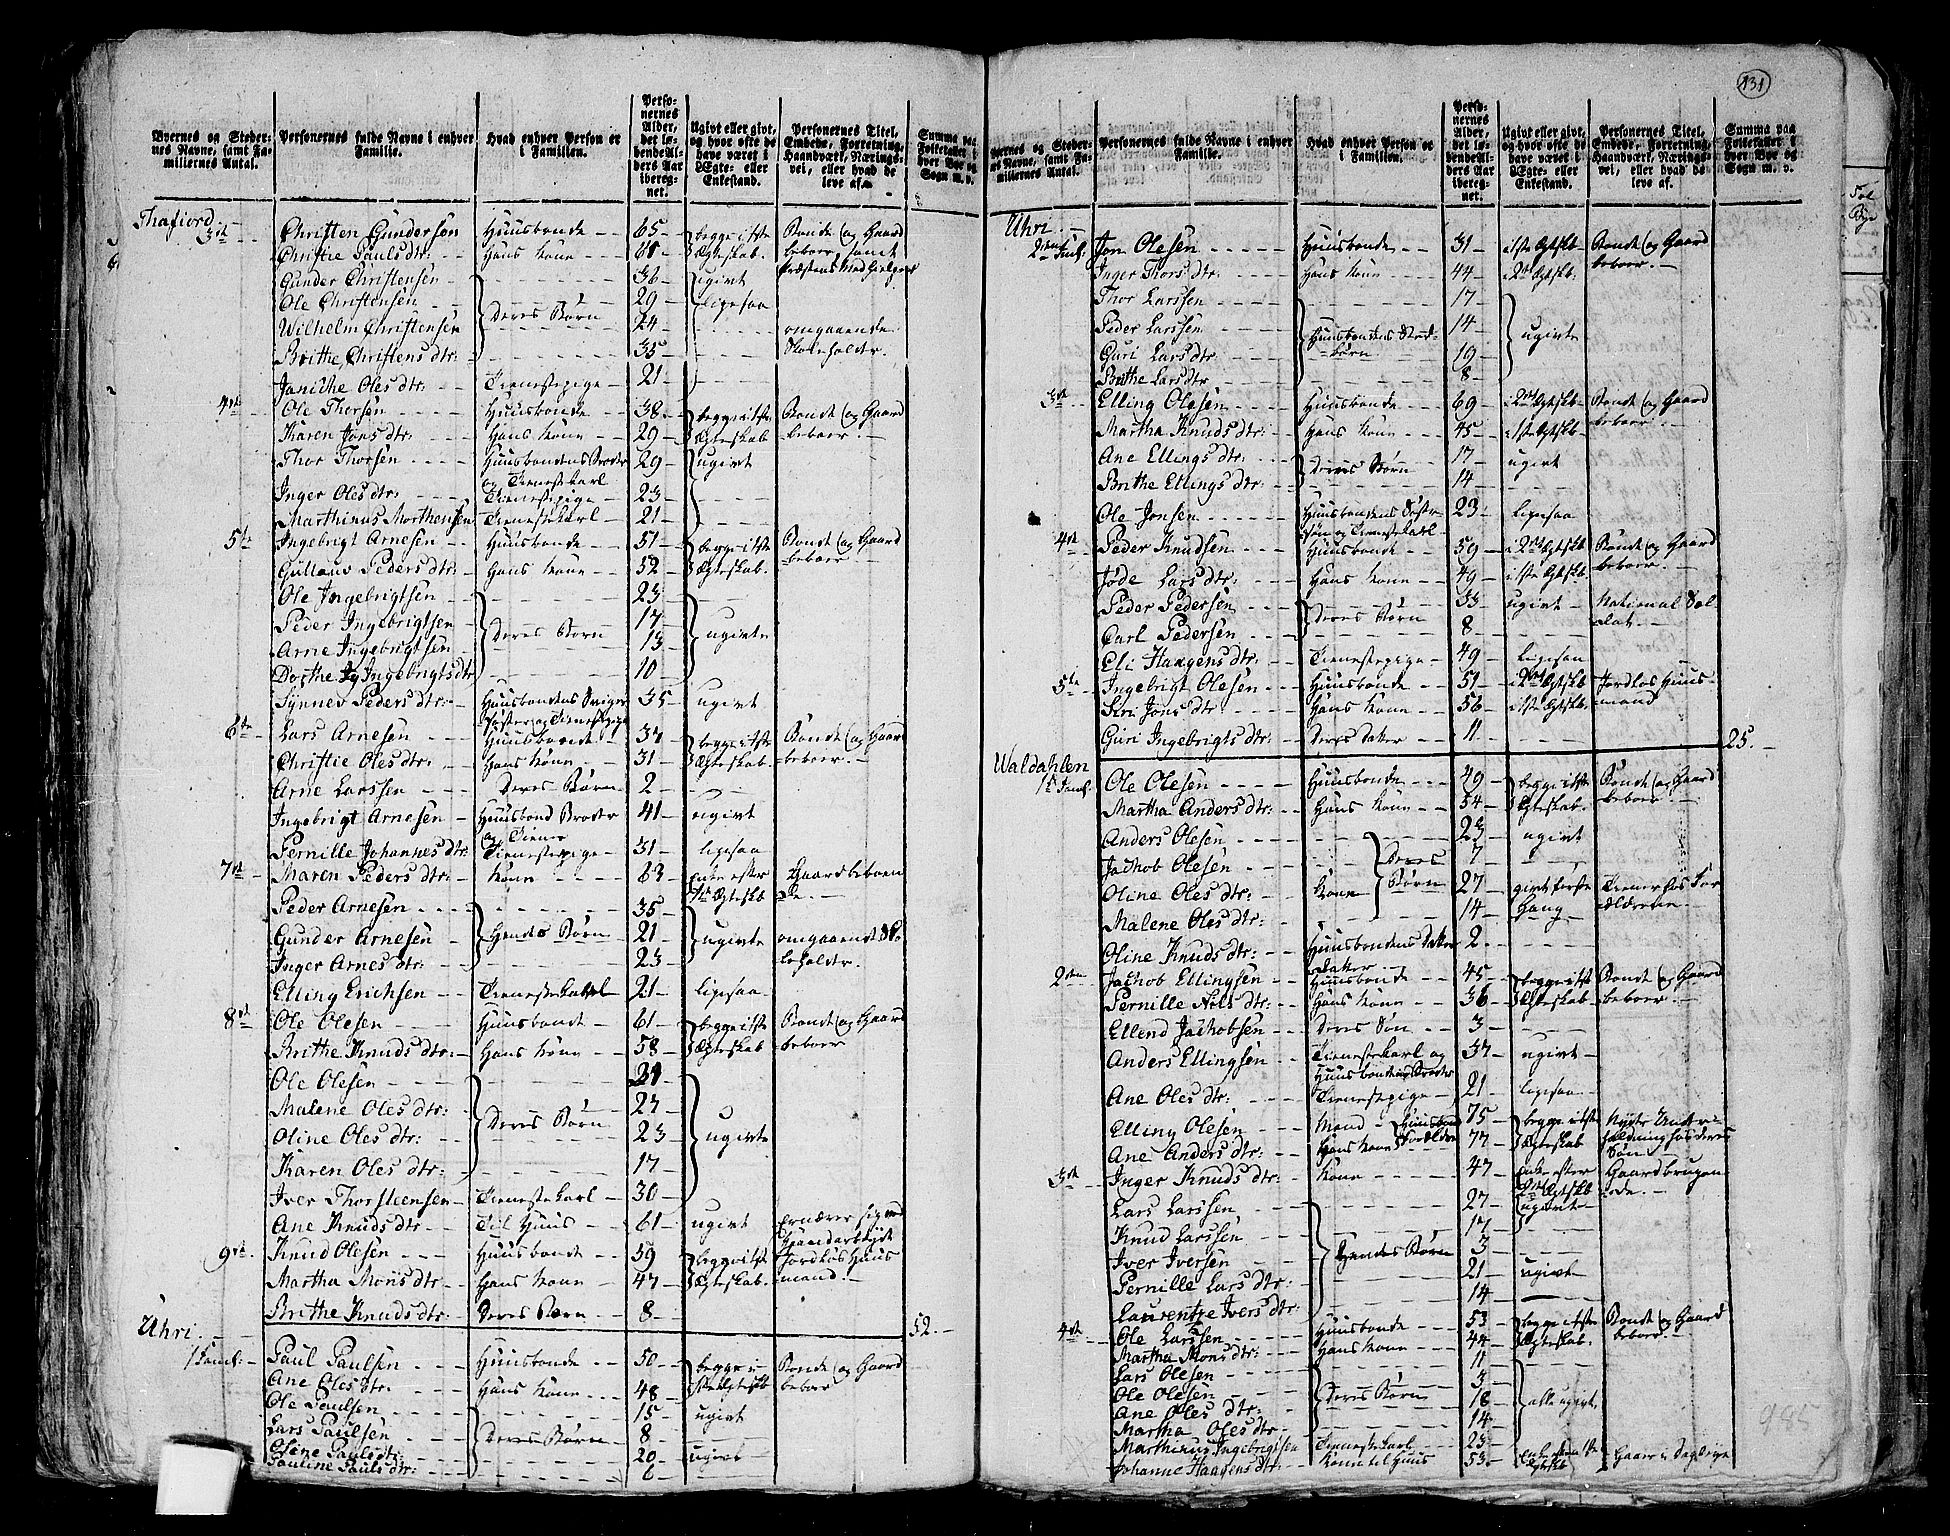 131
Byernes og Stedernes Navne, samt Familiernes Antal. | Personernes fulde Navne i enhver Familie. | Hvad enhver Person er i Familien. | Personernes Alder, det løbende Alders Aar iberegnet. | Ugivt eller givt, og hvor ofte de have været i Ægte- eller Enkestand. | Personernes Titel, Embede, Forretning, Haandværk, Næringsvei, eller hvad de leve af. | Summa paa Folketallet i hver Bye og Sogn m. v.
Thafiord
3die Christen Gundersøn Huusbonde 65 begge i 1ste Bonde og Gaard
Christie Pauls dtr: Hans Kone Ægteskab. beboer samt
Gunder Christensen 36 ugivt Præstens Medhielper
Ole Christensen Deres Børn 29 ligesaa
Wilhelm Christensen 24 omgaaende
Brithe Christens dtr: 35 Skoeholder
Janiche Oles dtr. Tienestepige 21
4de Ole Thorsen Huusbonde 38 begge i 1ste Bonde og Gaard
Karen Jons dtr: Hans Kone 29 Ægteskab beboer
Thor Thorsen Huusbondens Broder 29 ugivt
og Tienestekarl
Inger Oles dtr: Tienestepige 23
Marthinus Morthensen Tienestekarl 21
5te Ingebrigt Arnesen Huusbonde 51 begge i 1ste Bonde og Gaard
Gullauv Peders dtr: Hans Kone 52 Ægteskab. beboer.
Ole Ingebrigtsen 23
Peder Ingebrigtsen Deres Børn 17 ugivte
Arne Ingebrigtsen 13
Dorthe Ingebrigts dtr 10
Synnev Peders dtr: Huusbondens Sviger 35 ugivt
Søster og Tienestepige
6te Lars Arnesen Huusbonde 37 begge i 1ste Bonde og Gaard
Christie Oles dtr: Hans Kone 31 Ægteskab. beboer.
Arne Larssen Deres Børn 2
Ingebrigt Arnesen Huusbond Broder 41 ugivt
og Tiener
Pernille Johannes dtr: Tienestepige 31 ligesaa
7de Maren Peders dtr: Kone 63 Enke efter Gaardbeboen
1ste Ægteskb de.
Peder Arnesen 35
Gunder Arnesen Hendes Børn 21 ugivte omgaaende
Inger Arnes dtr: 23
Elling Erichsen Tienestekarl 21 ligesaa
8de Ole Olesen Huusbonde 61 begge i 1ste Bonde og Gaard
Brithe Knuds dtr: Hans Kone 58 Ægteskab beboer
Ole Olesen
Malene Oles dtr: Deres Børn 27 ugivte
Oline Oles dtr: 23
Karen Oles dtr: 17
Iver Thorsteensen Tienestekarl 30
Ane Knuds dtr Til Huus 61 ugivt Ernærer sig ved
Haandarbeyde
9de Knud Olesen Huusbonde 59 begge i 1ste Jordløs Huus
Martha Mons dtr Hans Kone 47 Ægteskab. mand.
Brithe Knuds dtr: Deres Barn 8
52
Uhri
1 Famil: Paul Paulsen Huusbonde 50 begge i Bonde og Gaard
Ane Oles dtr. Hans Kone 48 beboer
Ole Paulsen 15 ugivt
Lars Paulsen Deres Børn 8
Elene Pauls dtr: 20 ugivt
Pauline Pauls dtr: 6
Byernes og Stedernes Navne, samt Familiernes Antal. | Personernes fulde Navne i enhver Familie. | Hvad enhver Person er i Familien. | Personernes Alder, det løbende Alders Aar iberegnet. | Ugivt eller givt, og hvor ofte de have været i Ægte- eller Enkestand. | Personernes Titel, Embede, Forretning, Haandværk, Næringsvei, eller hvad de leve af. | Summa paa Folketallet i hver Bye og Sogn m. v.
Uhri
2den Famil: Jon Olesen Huusbonde 31 i 1ste Egteskb Bonde og Gaard
Inger Thors dtr: Hans Kone 44 i 2det Egteskb. beboer.
Thor Larssen 17
Peder Larssen Huusbondens Sted 14 ugivte
Guri Lars dtr: børn 19
Brithe Lars dtr. 8
3die Elling Olesen Huusbonde 69 i 2det Egteskb Bonde og Gaard
Martha Knuds dtr: Hans Kone 45 i 1ste Egteskb beboer.
Ane Ellings dtr: Deres Børn 17 ugivt
Brithe Ellings dtr: 14
Ole Jonsen Huusbondens Søster 23 ligesaa
Søn og Tienestekarl
4de Peder Knudsen Huusbonde 59 i 2det Egteskb Bonde og Gaard
Jøde Lars dtr: Hans Kone 49 i 1ste Egteskb. beboer.
Peder Pedersen Deres Børn 33 ugivt National Sol
Carl Pedersen 8 dat.
Eli Haagens dtr: Tienestepige 49 ligesaa
5te Ingebrigt Olesen Huusbonde 51 i 2det Egteskb Jordløs Huus
Siri Jons dtr: Hans Kone 56 i 1ste Egteskb mand
Guri Ingebrigts dtr: Deres Datter 11
25.
Waldahlen
1 Famil. Ole Olesen Huusbonde 49 begge i 1ste Bonde og Gaard
Martha Anders dtr: Hans Kone 54 Ægteskab. beboer.
Anders Olesen 23 ugivt
Jachob Olesen Deres 7
Oline Oles dtr: Kone Børn 27 givt første Tiener hos For
Malene Oles dtr: 14 Gang ældrene.
Oline Knuds dtr: Huusbondens Datter 2
datter
2den Jachob Ellingsen Huusbonde 45 begge i 1ste Bonde og Gaard
Pernille Nils dtr: Hans Kone 36 Ægteskab beboer.
Ellend Jachobsen Deres Søn 3
Anders Ellingsen Tienestekarl og 37 ugivt
Huusbondens Broder
Ane Oles dtr: Tienestepige 21 ligesaa
Elling Olesen Mand Huusbond 75 begge i 1ste Nyder Under
Ane Anders dtr: Hans Kone Forældre 77 Ægteskab holdning hos deres
Søn
3die Inger Knuds dtr: Kone 47 Enke efter Gaardbrugen
2det Ægteskb de.
Lars Larssen 27 ugivt
Knud Larssen 17
Iver Iversen Hendes Børn 3
Pernille Lars dtr: 21 ugivt
Laurentze Ivers dtr: 14
4de Ole Larssen Huusbonde 53 begge i 1ste Bonde og Gaard
Martha Mons dtr: Hans Kone 44 Ægteskab. beboer.
Lars Olesen 11
Ole Olesen Deres Børn 3 alle ugivt
Ane Oles dtr: 18
Martha Oles dtr 14
Marthinus Ingebrigtsen Tienestekarl 23
Johanne Haagens dtr: Kone til Huus 53
985